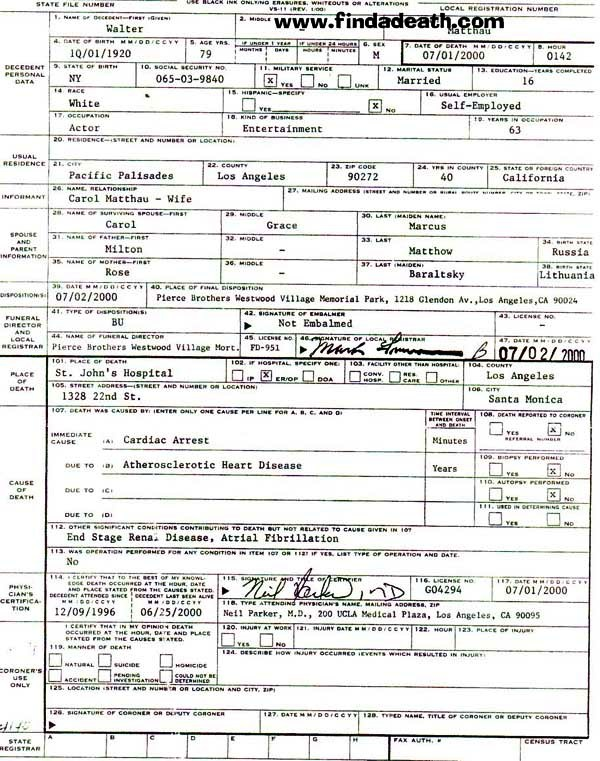 STATE FILE NUMBER USE BLACK INK ONLY/NO ERASURES, WHITEOUTS OR ALTERATIONS LOCAL REGISTRATION NUMBER
VS-11 (REV. 1/00)
www.findadeath.com
1. NAME OF DECEDENT—FIRST (GIVEN) 2. MIDDLE
Walter - Matthau
4. DATE OF BIRTH MM/DD/CCYY 5. AGE YRS. IF UNDER 1 YEAR IF UNDER 24 HOURS 6. SEX 7. DATE OF DEATH MM/DD/CCYY 8. HOUR
MONTHS DAYS HOURS MINUTES
1Q/01/1920 79 M 07/01/2000 0142
DECEDENT PERSONAL DATA
9. STATE OF BIRTH 10. SOCIAL SECURITY NO. 11. MILITARY SERVICE 12. MARITAL STATUS 13. EDUCATION—YEARS COMPLETED
NY 065-03-9840 X YES NO UNK Married 16
14. RACE 15. HISPANIC—SPECIFY 16. USUAL EMPLOYER
White YES X NO Self-Employed
17. OCCUPATION 18. KIND OF BUSINESS 19. YEARS IN OCCUPATION
Actor Entertainment 63
USUAL RESIDENCE
20. RESIDENCE—(STREET AND NUMBER OR LOCATION)
21. CITY 22. COUNTY 23. ZIP CODE 24. YRS IN COUNTY 25. STATE OR FOREIGN COUNTRY
Pacific Palisades Los Angeles 90272 40 California
INFORMANT
26. NAME, RELATIONSHIP 27. MAILING ADDRESS (STREET AND NUMBER OR RURAL ROUTE NUMBER, CITY OR TOWN, STATE, ZIP)
Carol Matthau - Wife
SPOUSE AND PARENT INFORMATION
28. NAME OF SURVIVING SPOUSE—FIRST 29. MIDDLE 30. LAST (MAIDEN NAME)
Carol Grace Marcus
31. NAME OF FATHER—FIRST 32. MIDDLE 33. LAST 34. BIRTH STATE
Milton - Matthow Russia
35. NAME OF MOTHER—FIRST 36. MIDDLE 37. LAST (MAIDEN) 38. BIRTH STATE
Rose - Baraltsky Lithuania
DISPOSITION(S)
39. DATE MM/DD/CCYY 40. PLACE OF FINAL DISPOSITION
07/02/2000 Pierce Brothers Westwood Village Memorial Park, 1218 Glendon Av.,Los Angeles,CA 90024
FUNERAL DIRECTOR AND LOCAL REGISTRAR
41. TYPE OF DISPOSITION(S) 42. SIGNATURE OF EMBALMER 43. LICENSE NO.
BU Not Embalmed -
44. NAME OF FUNERAL DIRECTOR 45. LICENSE NO. 46. SIGNATURE OF LOCAL REGISTRAR 47. DATE MM/DD/CCYY
Pierce Brothers Westwood Village Mort. FD-951 07/02/2000
PLACE OF DEATH
101. PLACE OF DEATH 102. IF HOSPITAL, SPECIFY ONE: 103. FACILITY OTHER THAN HOSPITAL: 104. COUNTY
St. John's Hospital IP X ER/OP DOA CONV. HOSP. RES. CARE OTHER Los Angeles
105. STREET ADDRESS—(STREET AND NUMBER OR LOCATION) 106. CITY
1328 22nd St. Santa Monica
CAUSE OF DEATH
107. DEATH WAS CAUSED BY: (ENTER ONLY ONE CAUSE PER LINE FOR A, B, C, AND D) TIME INTERVAL BETWEEN ONSET AND DEATH 108. DEATH REPORTED TO CORONER
YES X NO
REFERRAL NUMBER
IMMEDIATE CAUSE (A) Cardiac Arrest Minutes
109. BIOPSY PERFORMED
DUE TO (B) Atherosclerotic Heart Disease Years YES X NO
110. AUTOPSY PERFORMED
DUE TO (C) YES X NO
111. USED IN DETERMINING CAUSE
DUE TO (D) YES NO
112. OTHER SIGNIFICANT CONDITIONS CONTRIBUTING TO DEATH BUT NOT RELATED TO CAUSE GIVEN IN 107
End Stage Renal Disease, Atrial Fibrillation
113. WAS OPERATION PERFORMED FOR ANY CONDITION IN ITEM 107 OR 112? IF YES, LIST TYPE OF OPERATION AND DATE.
No
PHYSICIAN'S CERTIFICATION
114. I CERTIFY THAT TO THE BEST OF MY KNOWLEDGE DEATH OCCURRED AT THE HOUR, DATE AND PLACE STATED FROM THE CAUSES STATED. 115. SIGNATURE AND TITLE OF CERTIFIER 116. LICENSE NO. 117. DATE MM/DD/CCYY
DECEDENT ATTENDED SINCE DECEDENT LAST SEEN ALIVE Neil Parker, MD G04294 07/01/2000
MM/DD/CCYY MM/DD/CCYY 118. TYPE ATTENDING PHYSICIAN'S NAME, MAILING ADDRESS, ZIP
12/09/1996 06/25/2000 Neil Parker, M.D., 200 UCLA Medical Plaza, Los Angeles, CA 90095
CORONER'S USE ONLY
I CERTIFY THAT IN MY OPINION DEATH OCCURRED AT THE HOUR, DATE AND PLACE STATED FROM THE CAUSES STATED. 120. INJURY AT WORK 121. INJURY DATE MM/DD/CCYY 122. HOUR 123. PLACE OF INJURY
YES NO
119. MANNER OF DEATH 124. DESCRIBE HOW INJURY OCCURRED (EVENTS WHICH RESULTED IN INJURY)
NATURAL SUICIDE HOMICIDE
ACCIDENT PENDING INVESTIGATION COULD NOT BE DETERMINED
125. LOCATION (STREET AND NUMBER OR LOCATION AND CITY, ZIP)
126. SIGNATURE OF CORONER OR DEPUTY CORONER 127. DATE MM/DD/CCYY 128. TYPED NAME, TITLE OF CORONER OR DEPUTY CORONER
STATE REGISTRAR A B C D E F G H FAX AUTH. # CENSUS TRACT